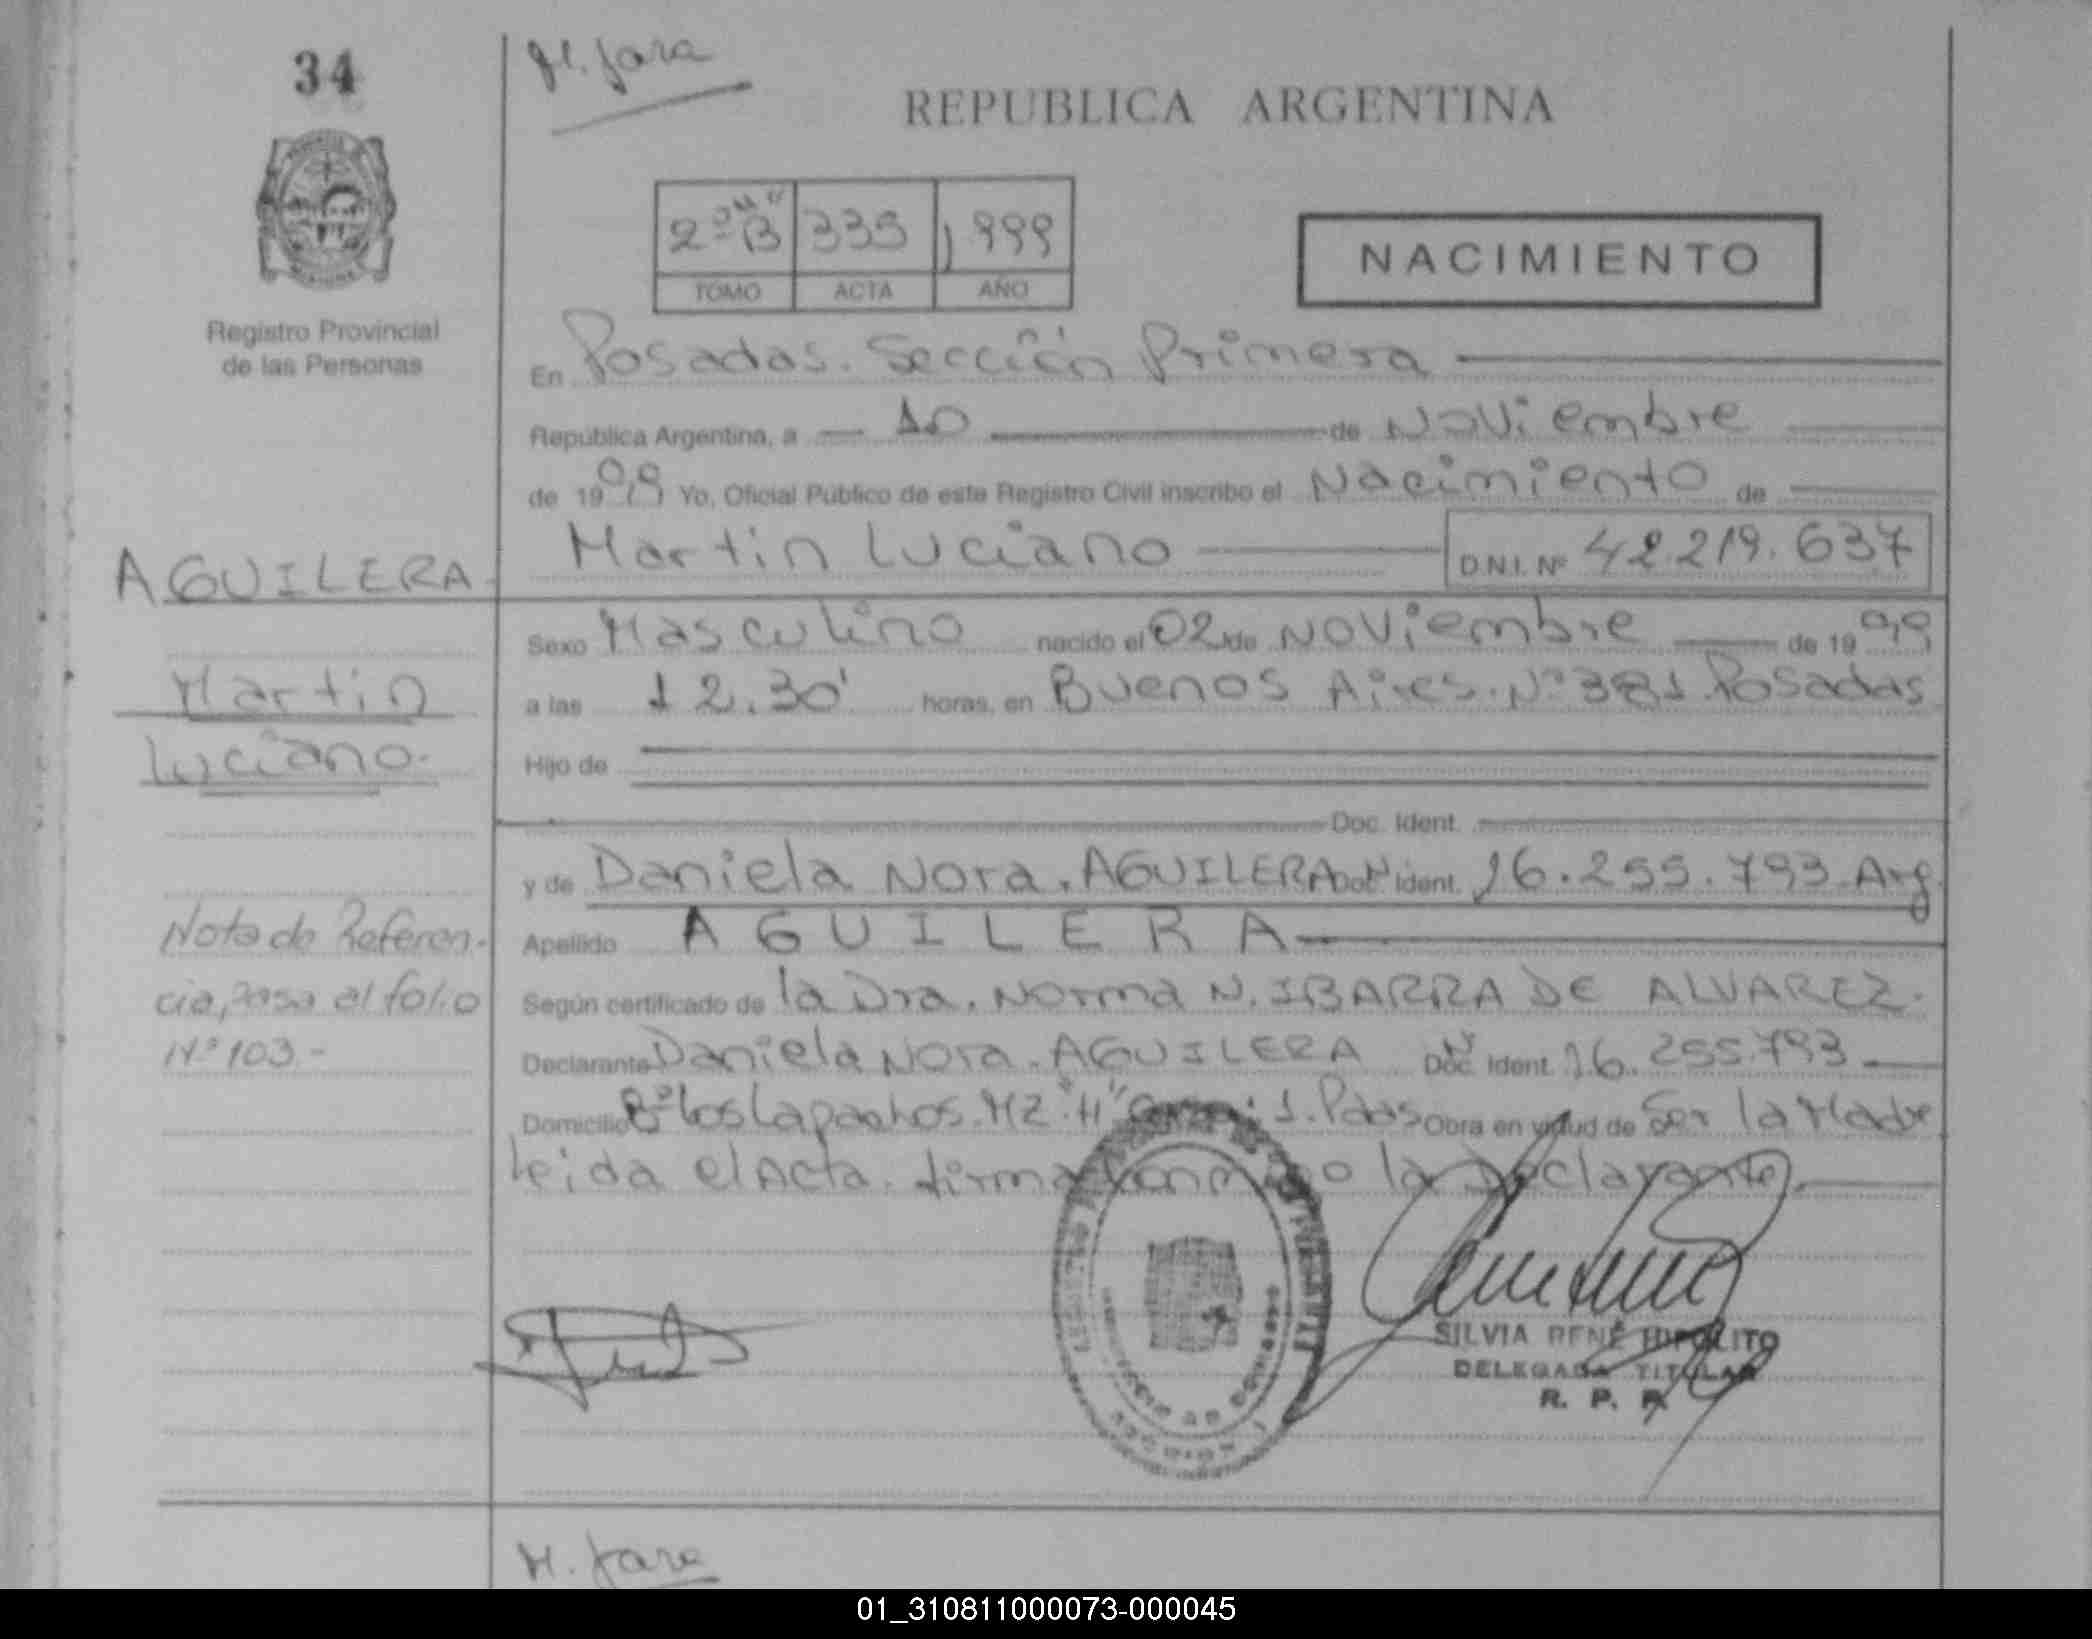 34
M. Jara
REPUBLICA ARGENTINA
2º "B" 335 1999
TOMO ACTA AÑO
NACIMIENTO
Registro Provincial
de las Personas
En Posadas. Sección Primera
República Argentina, a 10 de Noviembre
de 1999 Yo, Oficial Público de este Registro Civil inscribo el Nacimiento de
Martin Luciano D.N.I. Nº 42.219.637
AGUILERA
Martin
Luciano.
Sexo Masculino nacido el 02 de Noviembre de 1999
a las 12.30' horas, en Buenos Aires. Nº 381. Posadas
Hijo de
Doc. Ident.
y de Daniela Nora. AGUILERA Doc. Ident. 16.255.793 Arg
Apellido AGUILERA
Nota de Referen-
cia, pasa al folio
Nº 103.-
Según certificado de la Dra. Norma N. IBARRA DE ALVAREZ.
Declarante Daniela Nora. AGUILERA Doc. Ident. 16.255.793
Domicilio Bº Los Lapachos. MZ "H" 1. Pdas Obra en virtud de Ser la Madre
Leida el Acta. firma la Declarante.
SILVIA RENÉ HIPOLITO
DELEGADA TITULAR
R. P. P.
M. Jara
01_310811000073-000045